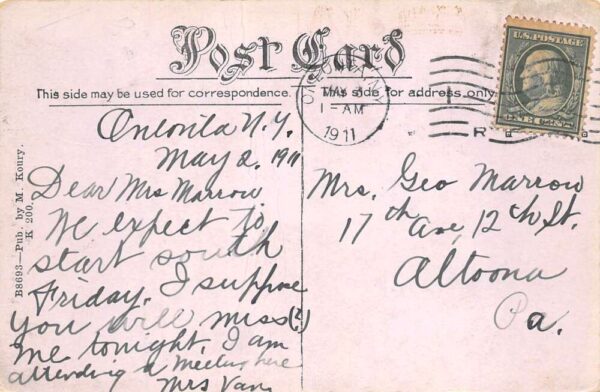 Post Card
This side may be used for correspondence.
This side for address only
U.S. POSTAGE
ONE CENT
MAY
1-AM
1911
R
B8693—Pub. by M. Koury.
K 200.
Oneonta N.Y.
May 2. 1911
Dear Mrs Marrow
We expect to
start south
Friday. I suppose
you will miss(?)
me tonight. I am
attending a Meeting here
Mrs Van
Mrs. Geo Marrow
17th Ave, 12th St.
Altoona
Pa.